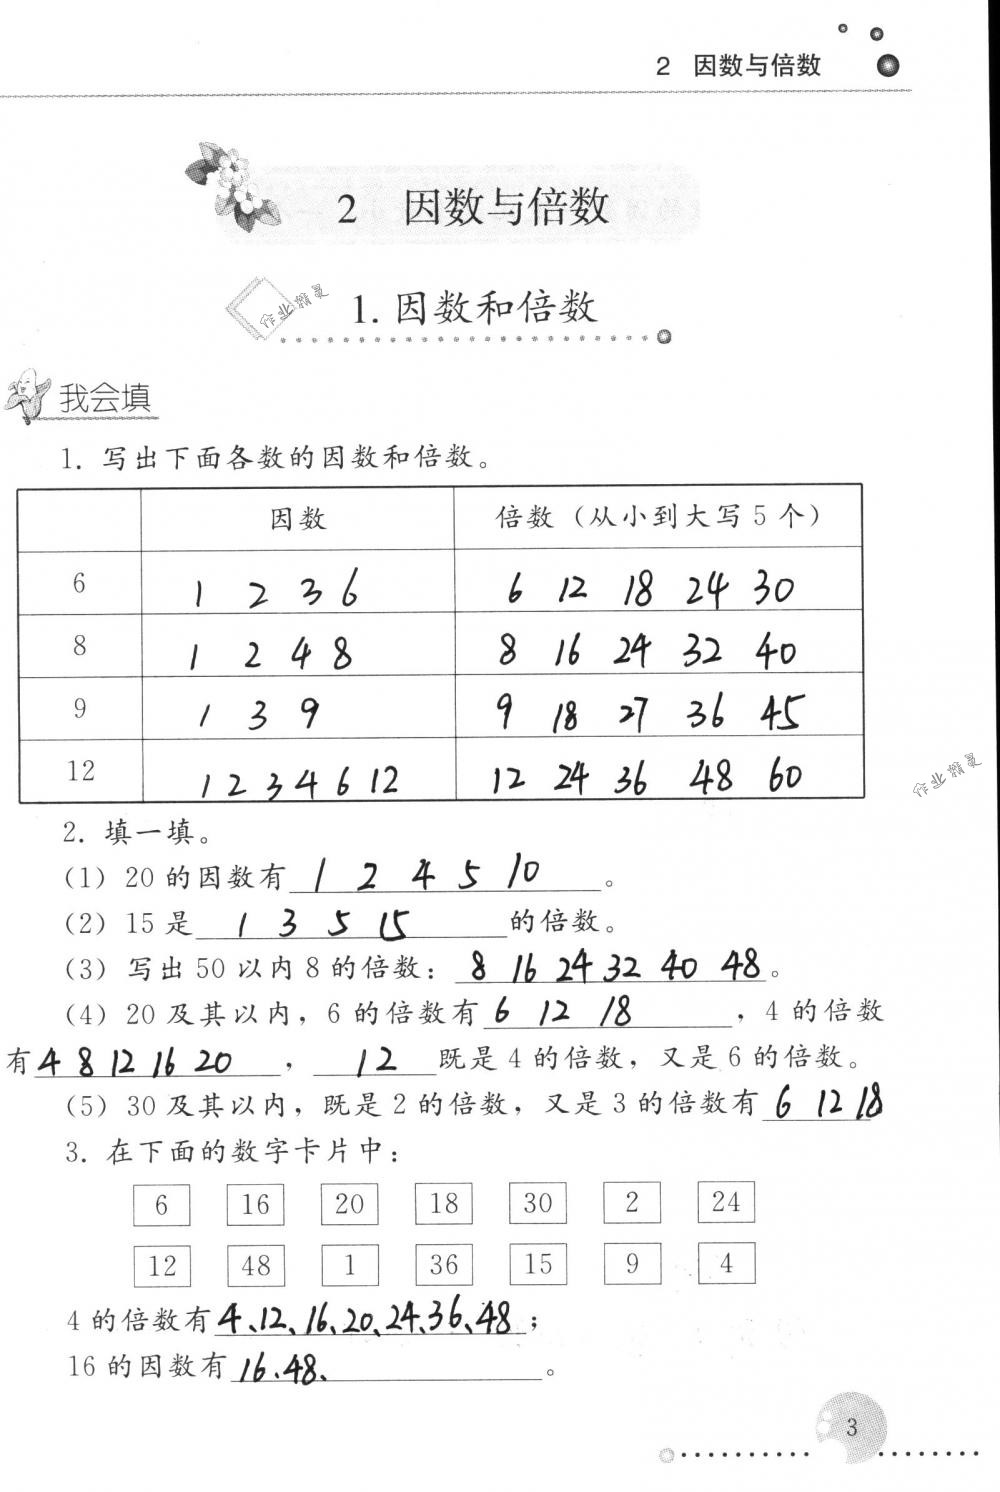 2 因数与倍数
2 因数与倍数
作业精灵
1. 因数和倍数
我会填
1. 写出下面各数的因数和倍数。
因数 倍数（从小到大写 5 个）
6 1 2 3 6 6 12 18 24 30
8 1 2 4 8 8 16 24 32 40
9 1 3 9 9 18 27 36 45
12 1 2 3 4 6 12 12 24 36 48 60
作业精灵
2. 填一填。
（1）20 的因数有 1 2 4 5 10 。
（2）15 是 1 3 5 15 的倍数。
（3）写出 50 以内 8 的倍数：8 16 24 32 40 48 。
（4）20 及其以内，6 的倍数有 6 12 18 ，4 的倍数
有 4 8 12 16 20 ，12 既是 4 的倍数，又是 6 的倍数。
（5）30 及其以内，既是 2 的倍数，又是 3 的倍数有 6 12 18
3. 在下面的数字卡片中：
6 16 20 18 30 2 24
12 48 1 36 15 9 4
4 的倍数有 4、12、16、20、24、36、48 ；
16 的因数有 16、48、 。
3